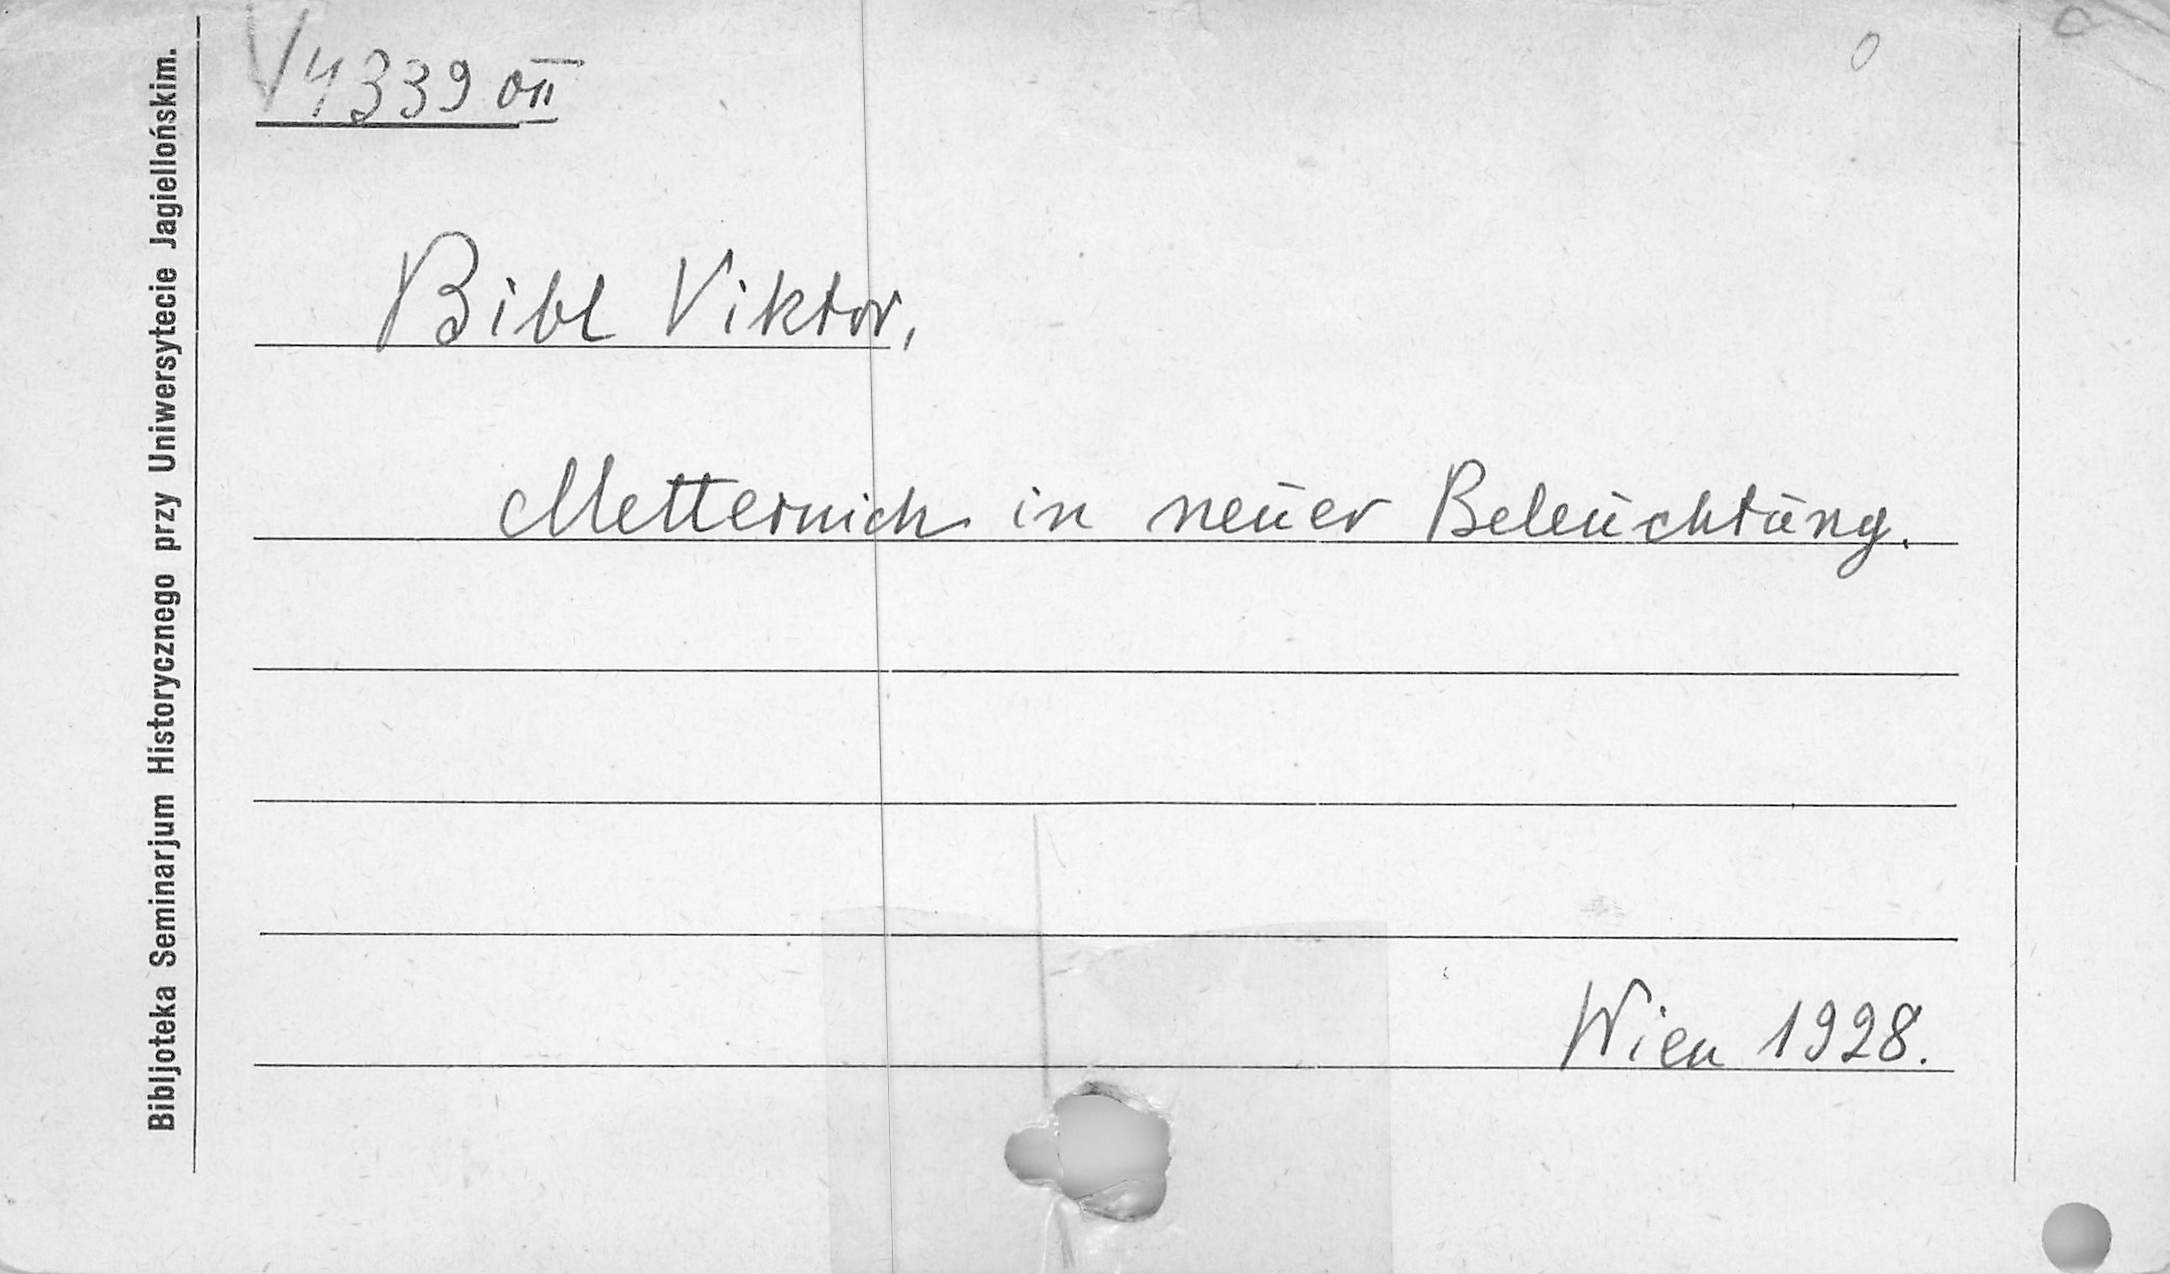 V 4339 OII
Bibl Viktor,
Metternich in neuer Beleuchtung.
Wien 1928.
Bibljoteka Seminarjum Historycznego przy Uniwersytecie Jagiellońskim.